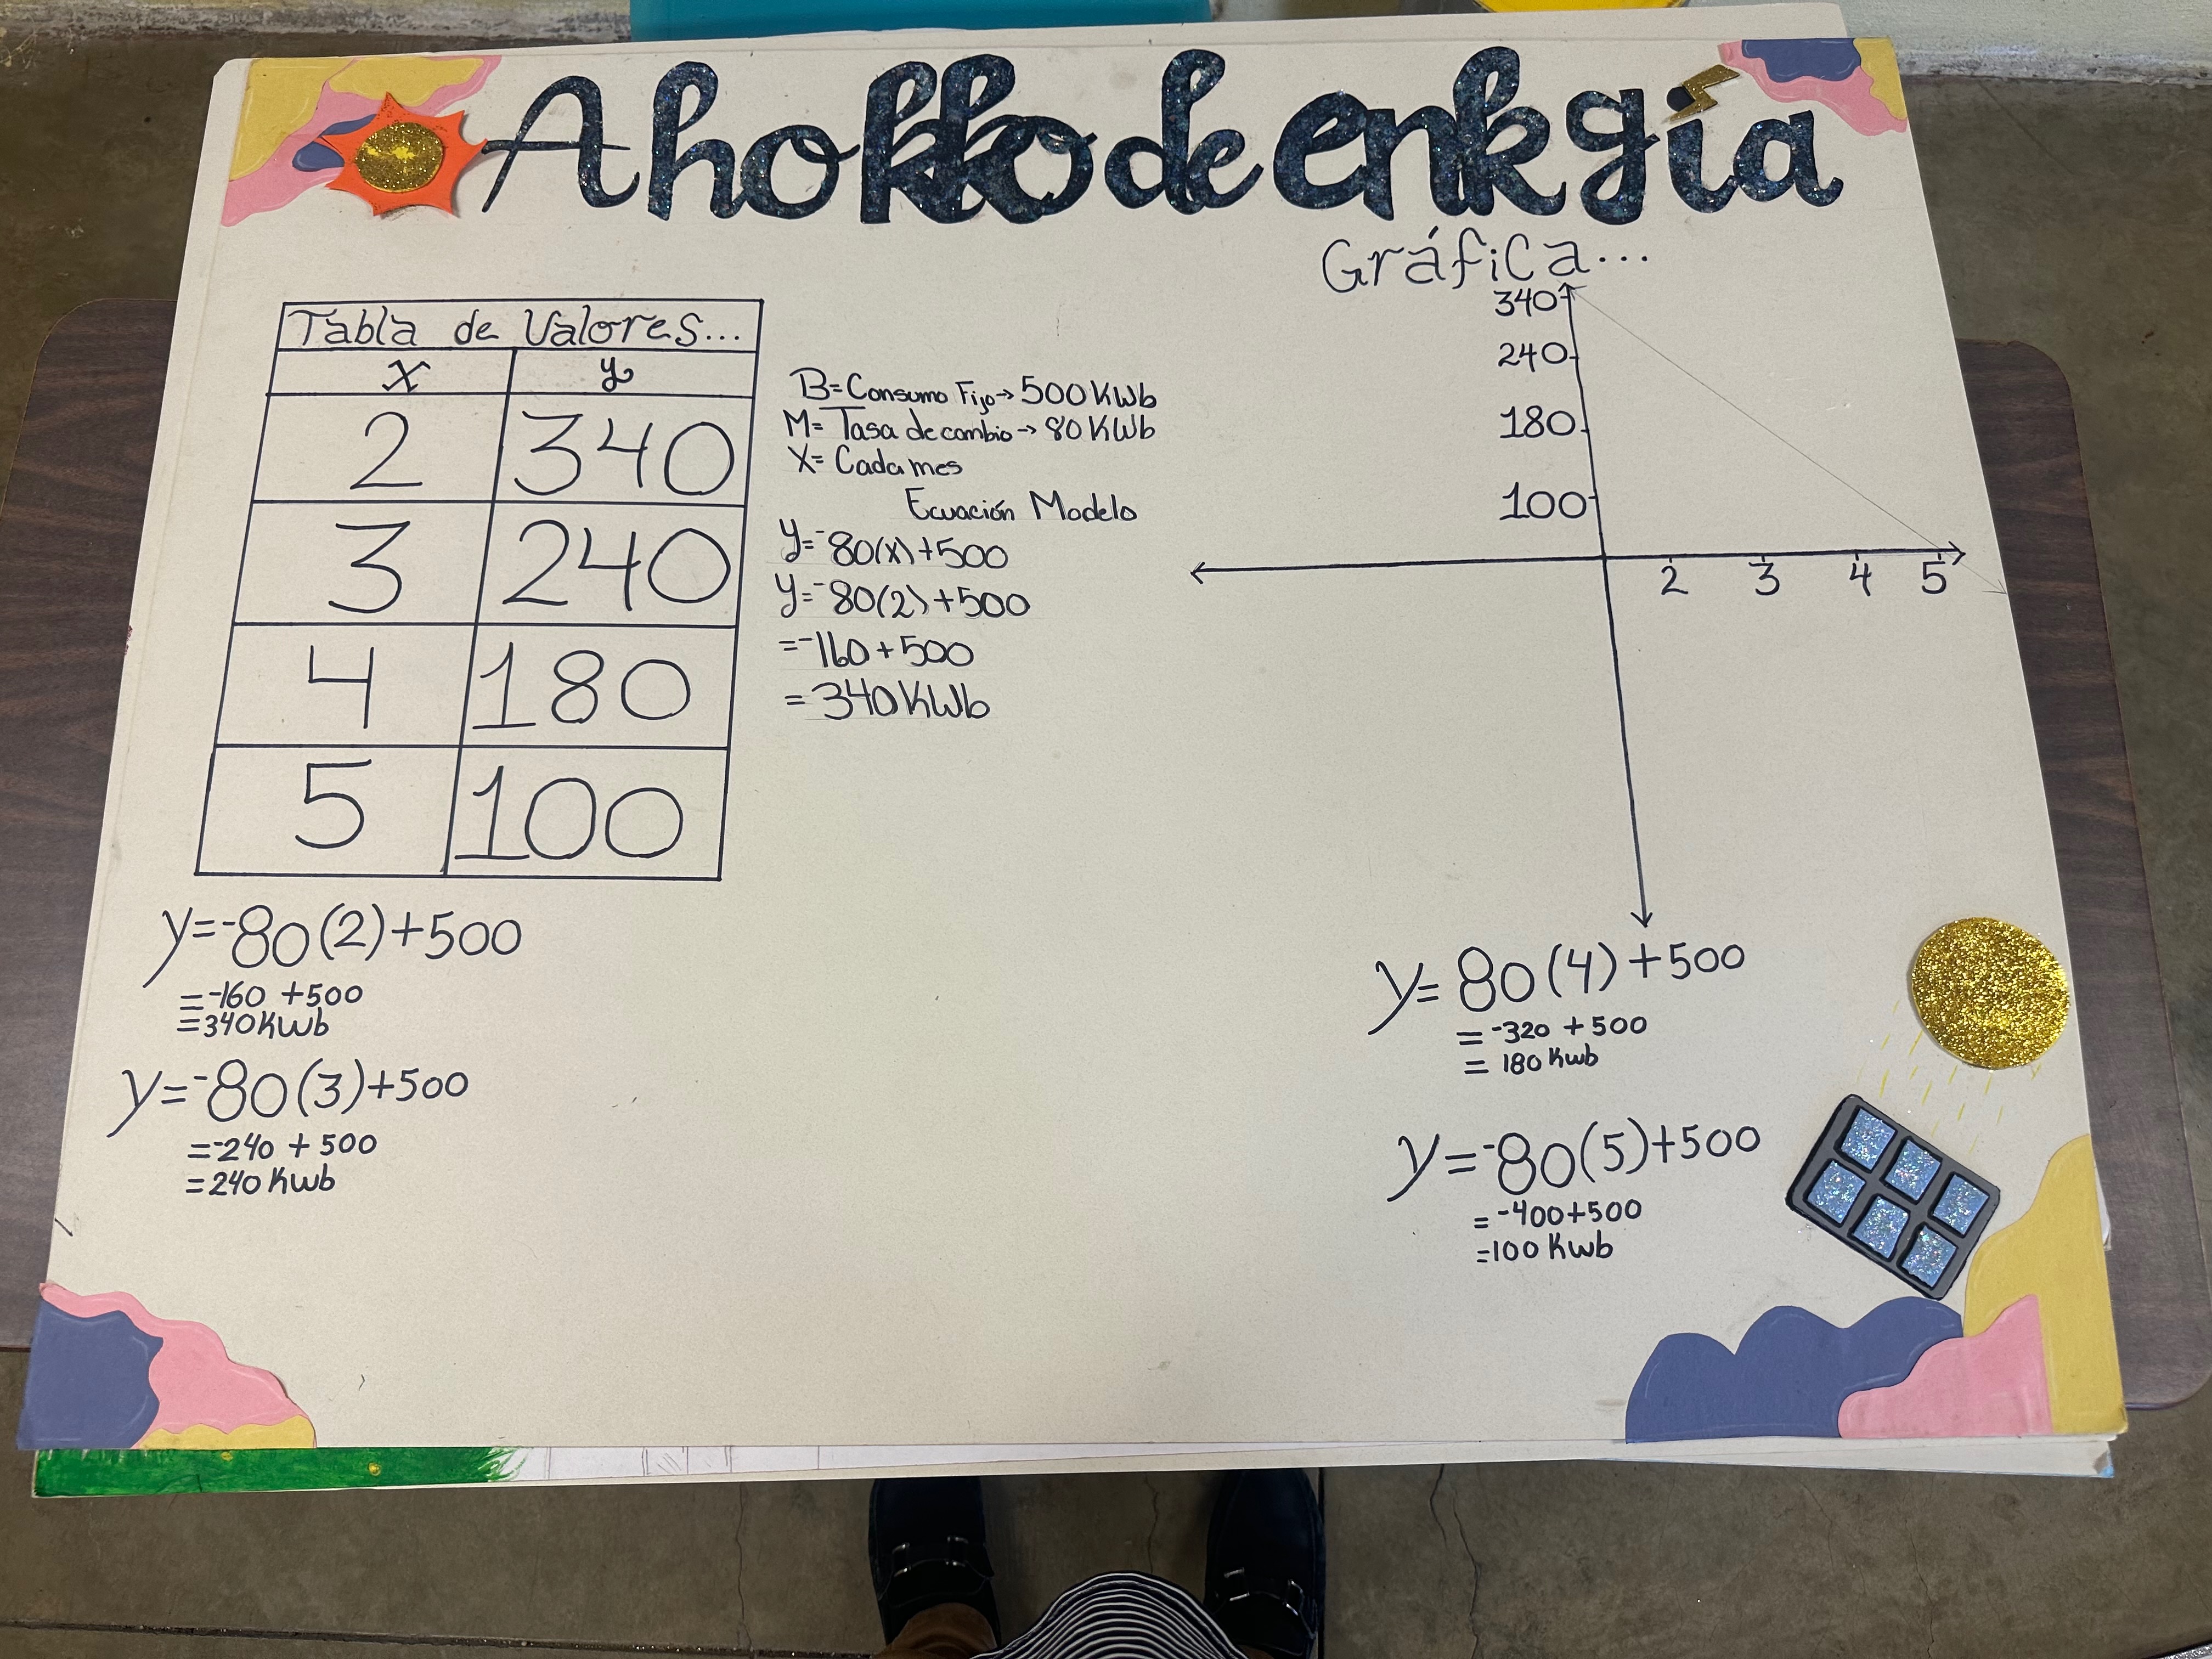 Ahorro de enrgía
Tabla de Valores...
x y
2 340
3 240
4 180
5 100
B=Consumo Fijo→500KWb
M=Tasa de cambio→80KWb
X=Cada mes
Ecuación Modelo
y=⁻80(x)+500
y=⁻80(2)+500
=⁻160+500
=340KWb
Gráfica...
340
240
180
100
2 3 4 5
y=⁻80(2)+500
=⁻160 +500
=340KWb
y=⁻80(3)+500
=⁻240 + 500
=240 KWb
y=80(4)+500
=⁻320 +500
= 180 Kwb
y=⁻80(5)+500
=⁻400+500
=100 Kwb